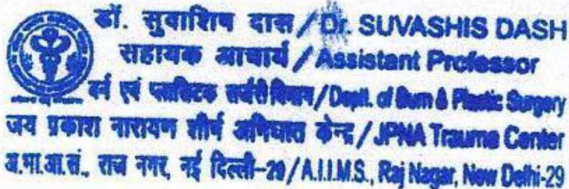 डॉ. सुवाशिष दास / Dr. SUVASHIS DASH
सहायक आचार्य / Assistant Professor
बर्न एवं प्लास्टिक सर्जरी विभाग / Deptt. of Burn & Plastic Surgery
जय प्रकाश नारायण शीर्ष अभिघात केन्द्र / JPNA Trauma Center
अ.भा.आ.सं., राज नगर, नई दिल्ली-29 / A.I.I.M.S., Raj Nagar, New Delhi-29